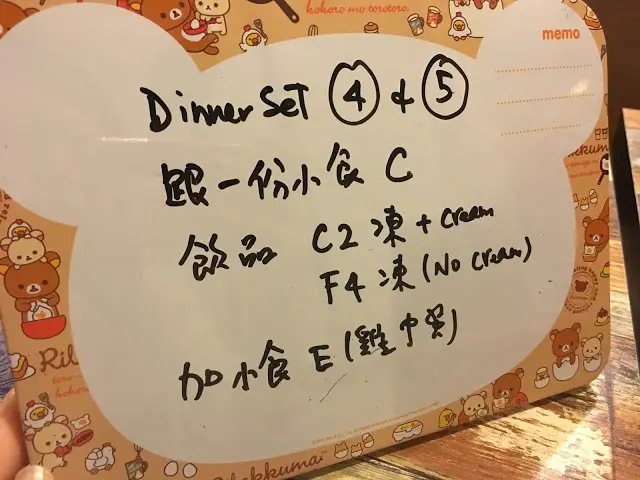 kokoro mo torotoro.
memo
Dinner Set ④ & ⑤
跟一份小食 C
飲品 C2 凍 + cream
F4 凍 (No cream)
加小食 E (雞中翼)
Rilakkuma™